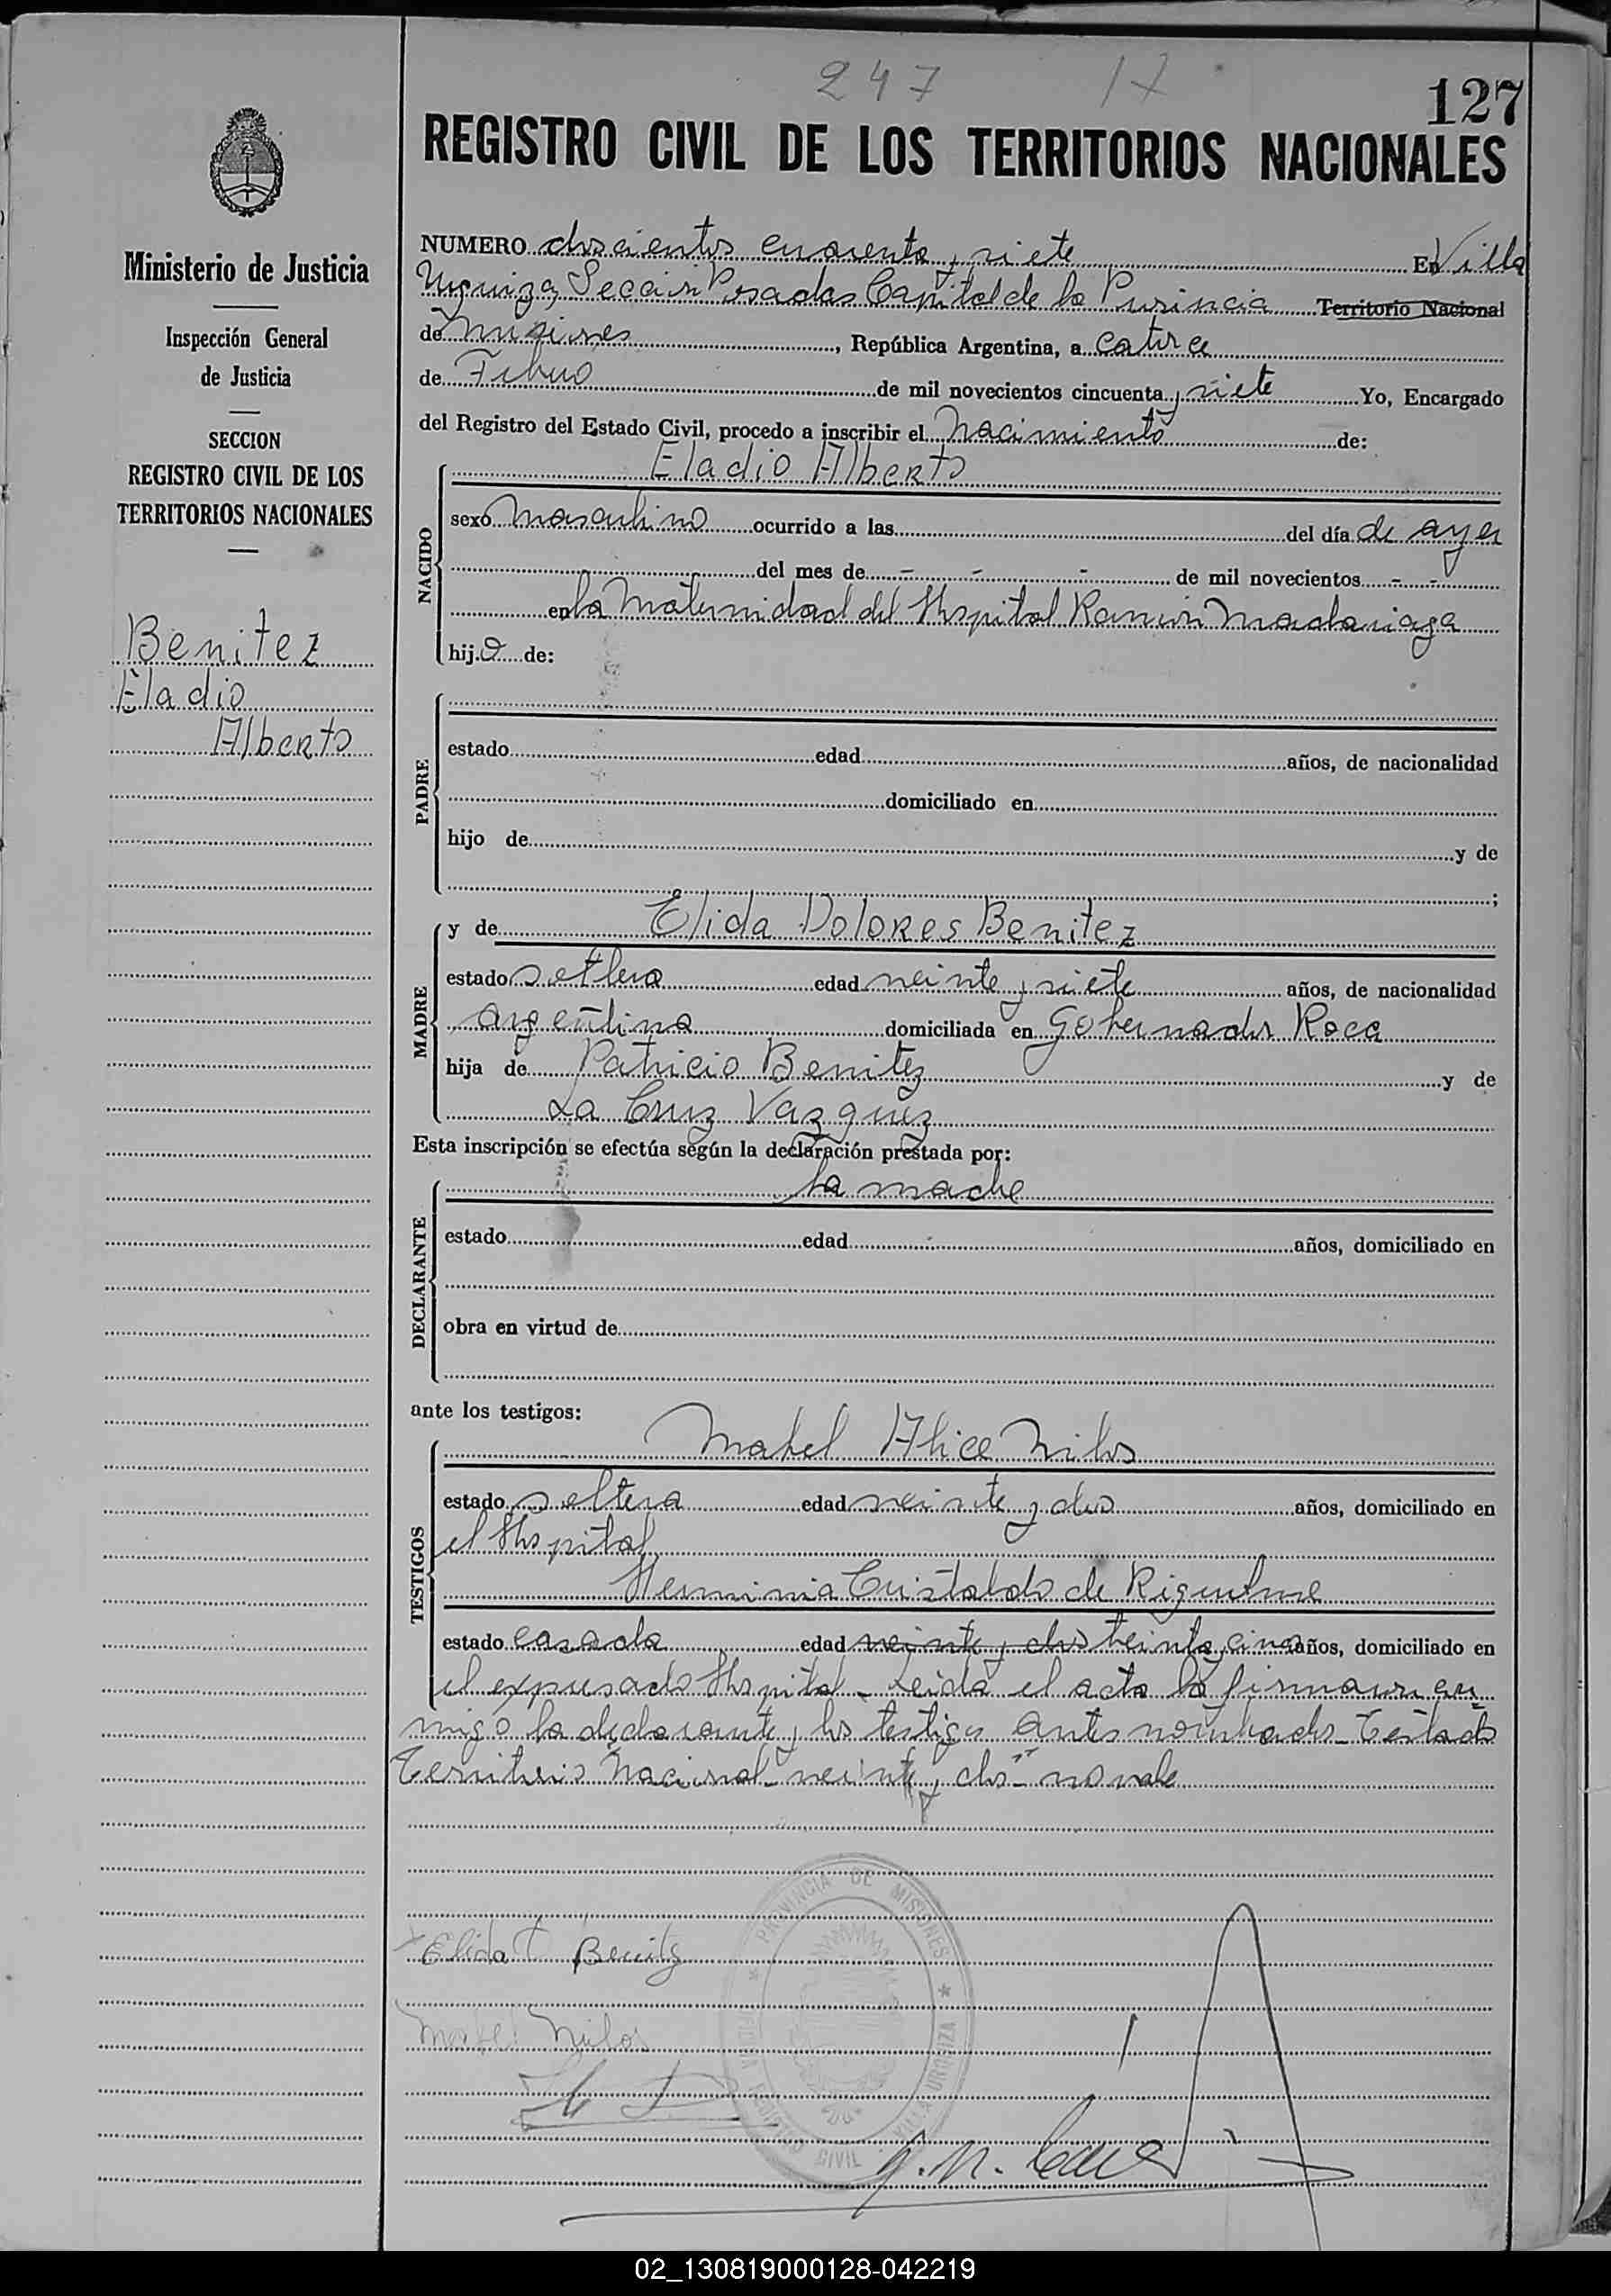 247 17
127
REGISTRO CIVIL DE LOS TERRITORIOS NACIONALES
Ministerio de Justicia
Inspección General
de Justicia
SECCION
REGISTRO CIVIL DE LOS
TERRITORIOS NACIONALES
Benitez
Eladio
Alberto
NUMERO doscientos cuarenta y siete En Villa
Urquiza, Sección Posadas Capital de la Provincia Territorio Nacional
de Misiones, República Argentina, a catorce
de Febrero de mil novecientos cincuenta y siete Yo, Encargado
del Registro del Estado Civil, procedo a inscribir el nacimiento de:
NACIDO
Eladio Alberto
sexo masculino ocurrido a las del día de ayer
del mes de - - - de mil novecientos - -
en la Maternidad del Hospital Ramón Madariaga
hijo de:
PADRE
estado edad años, de nacionalidad
domiciliado en
hijo de y de
;
MADRE
y de Elida Dolores Benitez
estado soltera edad veinte y siete años, de nacionalidad
argentina domiciliada en Gobernador Roca
hija de Patricio Benitez y de
La Cruz Vazquez
Esta inscripción se efectúa según la declaración prestada por:
DECLARANTE
la madre
estado edad años, domiciliado en
obra en virtud de
ante los testigos:
TESTIGOS
Mabel Alice Milos
estado soltera edad veinte y dos años, domiciliado en
el Hospital
Herminia Cristaldo de Riquelme
estado casada edad veinte y dos treinta y cinco años, domiciliado en
el expresado Hospital - Leida el acta la firmaron con
migo la declarante y los testigos antes nombrados - Testado
Territorio Nacional - veinte y dos - no vale
Elida Benitez
Mabel Milos
PROVINCIA DE MISIONES
OFICINA REGISTRO CIVIL VILLA URQUIZA
02_130819000128-042219